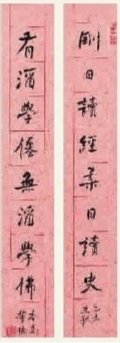 剛日讀經柔日讀史
有酒學僊無酒學佛